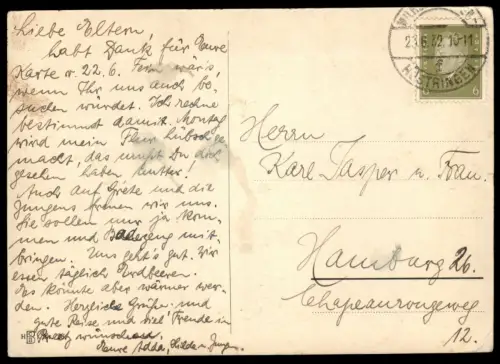 Liebe Eltern,
habt Dank für Eure
Karte v. 22.6. Fein wär's,
wenn Ihr uns auch be-
suchen würdet. Ich rechne
bestimmt damit. Montag
wird mein Flur hübsch ge-
macht, das mußt Du doch
gesehen haben Mutter!
Auch auf Grete und die
Jungens freuen wir uns.
Sie sollen nur ja kom-
men und Badezeug mit-
bringen. Uns geht's gut. Wir
essen täglich Erdbeeren.
Es könnte aber wärmer wer-
den. Herzliche Grüße und
gute Reise und viel Freude in
wünschend
Eure Adda, Hilde u. Jungens
23.6.32. 10-11
RÜSTRINGEN
6
Herrn
Karl Jasper u. Frau.
Hamburg 26.
Chapeaurougeweg
12.